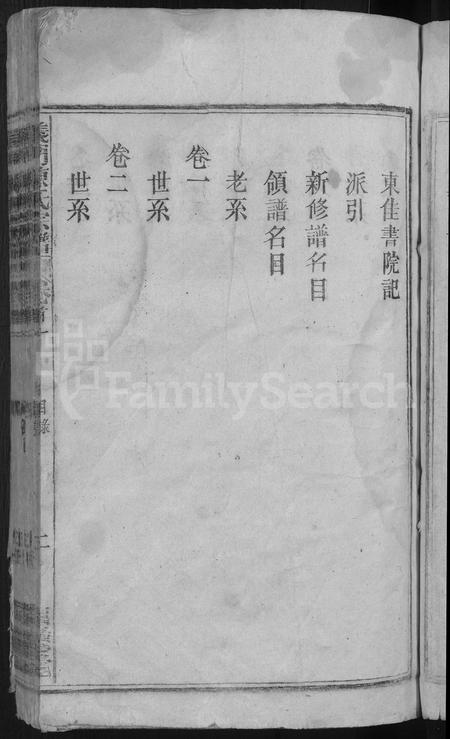 東佳書院記
派引
新修譜名目
領譜名目
老系
卷一
世系
卷二
世系
目錄
二
FamilySearch